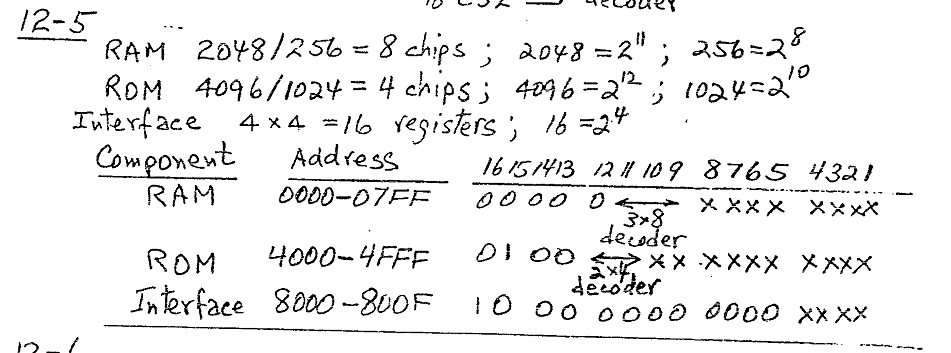 decoder
12-5
RAM 2048/256 = 8 chips; 2048 = 2^11; 256 = 2^8
ROM 4096/1024 = 4 chips; 4096 = 2^12; 1024 = 2^10
Interface 4 × 4 = 16 registers; 16 = 2^4
Component Address 16 15 14 13 12 11 10 9 8 7 6 5 4 3 2 1
RAM 0000-07FF 0 0 0 0 0 ←→ x x x x x x x x
3×8
decoder
ROM 4000-4FFF 0 1 0 0 ←→ x x x x x x x x x x
2×4
decoder
Interface 8000-800F 1 0 0 0 0 0 0 0 0 0 0 0 x x x x